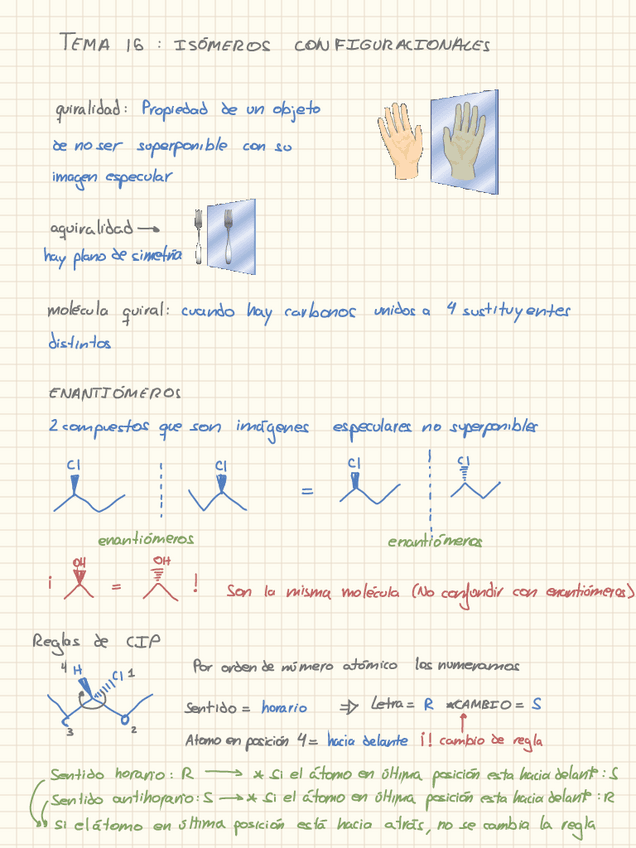 TEMA 16 : ISÓMEROS CONFIGURACIONALES
quiralidad: Propiedad de un objeto
de no ser superponible con su
imagen especular
aquiralidad →
hay plano de simetría
molécula quiral: cuando hay carbonos unidos a 4 sustituyentes
distintos
ENANTIÓMEROS
2 compuestos que son imágenes especulares no superponibles
Cl Cl = Cl Cl
enantiómeros enantiómeros
¡ OH = OH ! Son la misma molécula (No confundir con enantiómeros)
Reglas de CIP
4 H Cl 1 Por orden de número atómico los numeramos
Sentido = horario ⇒ Letra = R *CAMBIO = S
3 2
Átomo en posición 4 = hacia delante ¡! cambio de regla
Sentido horario: R → * Si el átomo en última posición esta hacia delante: S
Sentido antihorario: S → * Si el átomo en última posición esta hacia delante: R
Si el átomo en última posición está hacia atrás, no se cambia la regla